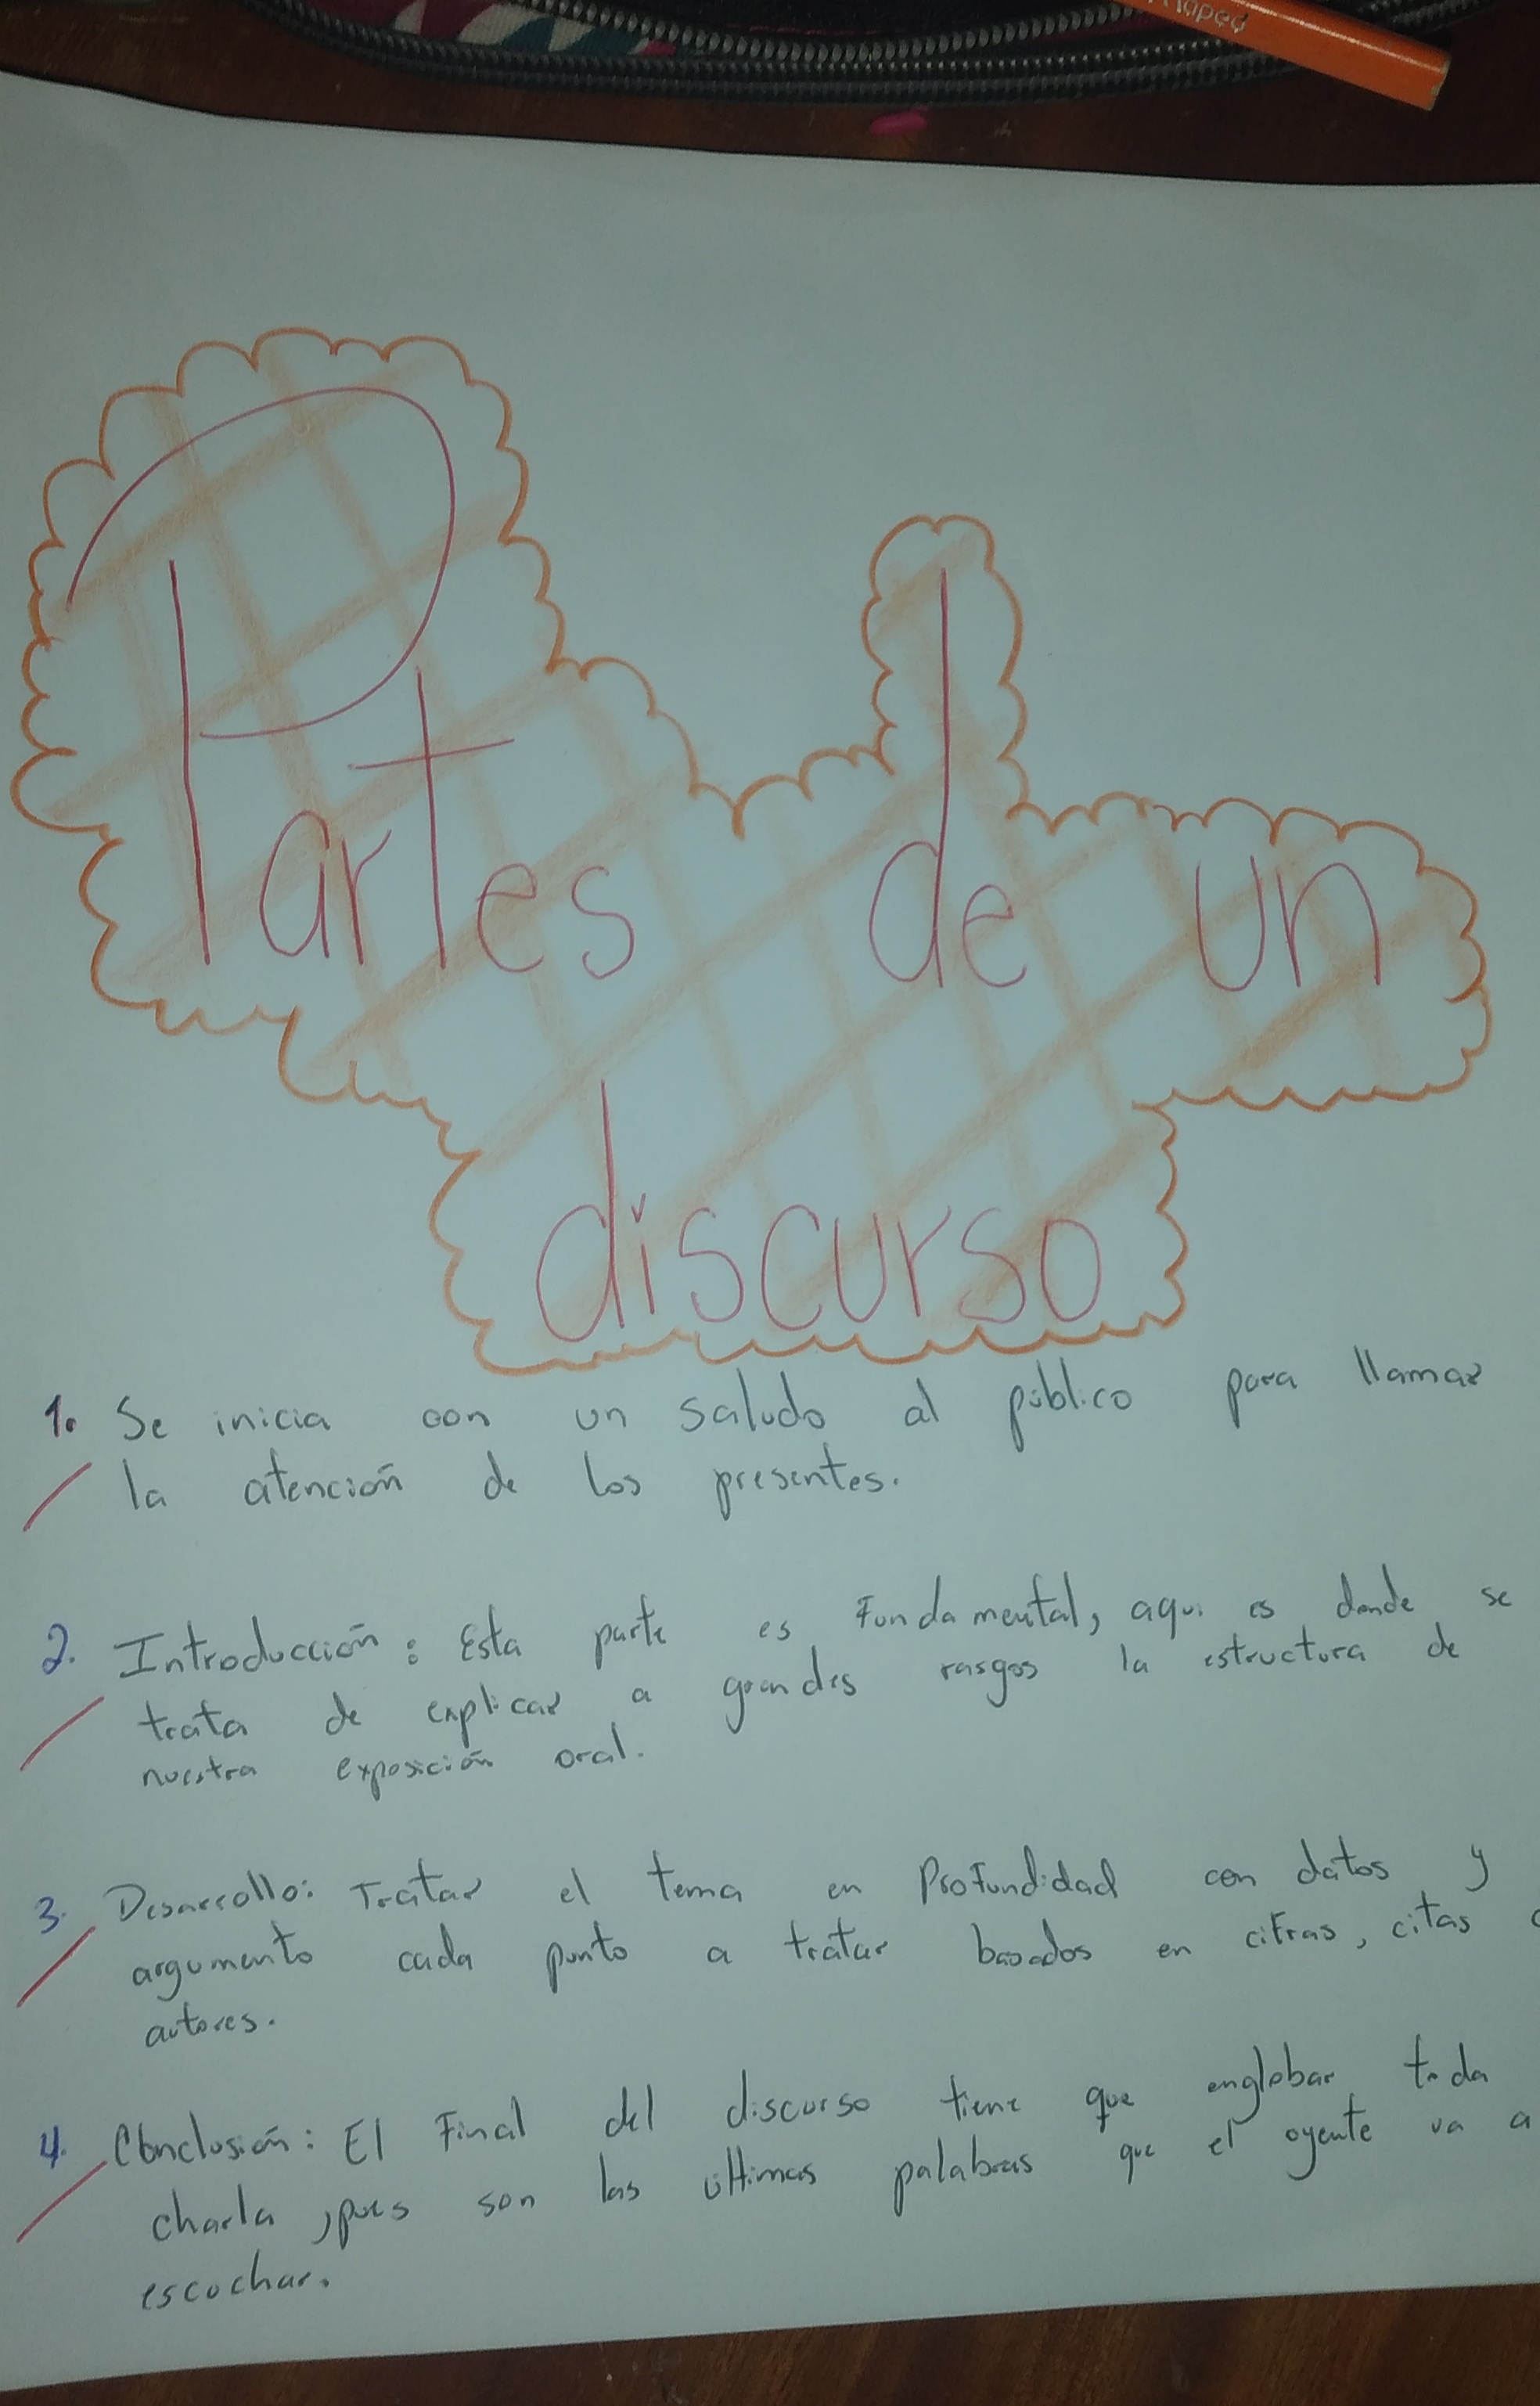 Maped
Partes de un
discurso
1. Se inicia con un saludo al público para llamar
la atención de los presentes.
2. Introducción: Esta parte es Fundamental, aqui es donde se
trata de explicar a grandes rasgos la estructura de
nuestra exposición oral.
3. Desarrollo: Tratar el tema en Profundidad con datos y
argumento cada punto a tratar basados en cifras, citas
autores.
4. Conclusión: El Final del discurso tiene que englobar toda
charla, pues son las últimas palabras que el oyente va a
escuchar.